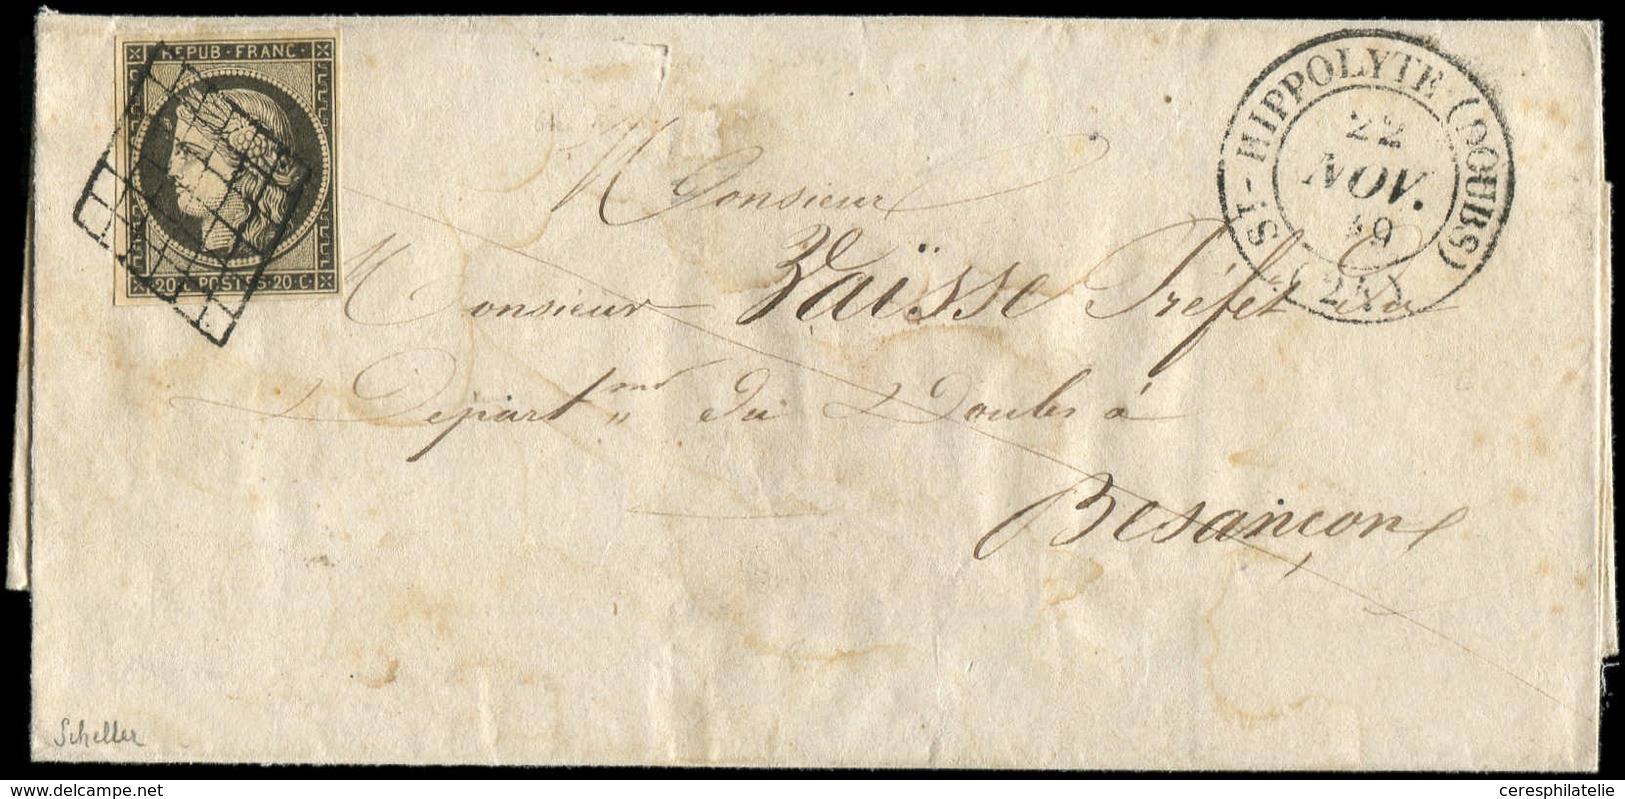 REPUB · FRANC ·
· 20 · C · POSTES · 20 · C ·
ST-HIPPOLYTE · (DOUBS)
22
NOV.
49
(24)
Monsieur
Monsieur Vaïsse Préfet du
Départ.mt du Doubs à
Besançon
Scheller
www.delcampe.net
ceresphilatelie